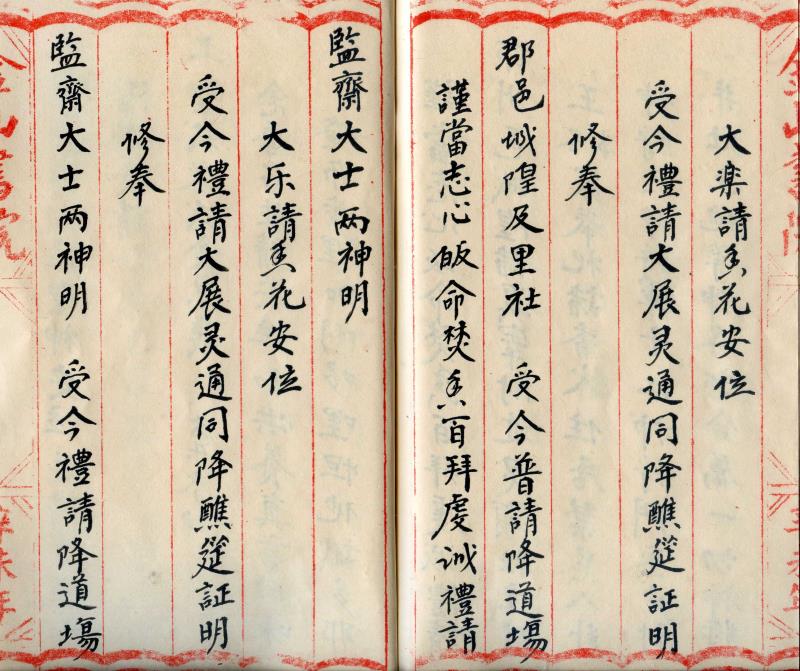 大楽請香花安位
受今禮請大展灵通同降醮筵証明
修奉
郡邑城隍及里社　受今普請降道塲
謹當志心皈命焚香百拜虔诚禮請
監齋大士两神明
大乐請香花安位
受今禮請大展灵通同降醮筵証明
修奉
監齋大士两神明　受今禮請降道塲